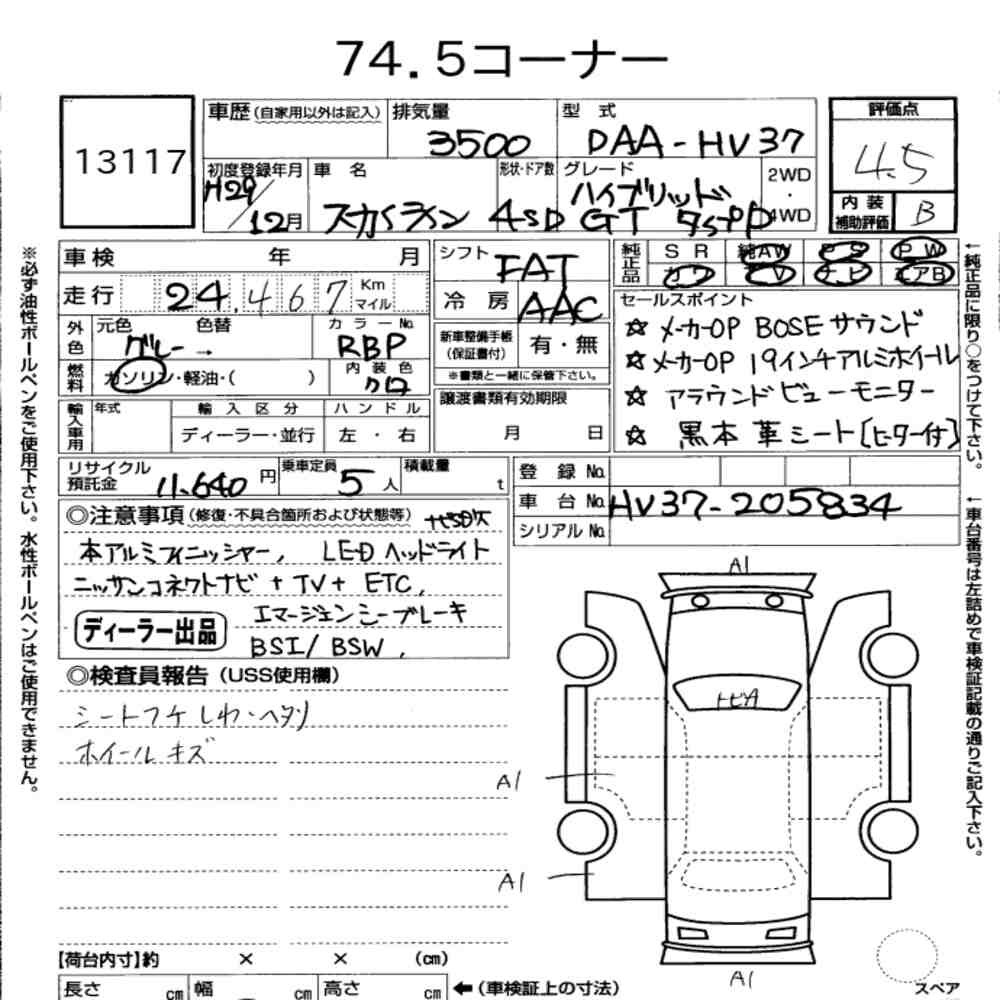 74.5コーナー
13117
車歴(自家用以外は記入) 排気量 3500 型式 DAA-HV37
評価点 4.5
初度登録年月 H29/12月 車名 スカイライン 形状・ドア数 4SD グレード ハイブリッド GT タイプP 2WD・4WD
内装補助評価 B
車検 年 月
走行 24,467 Km マイル
シフト FAT
冷房 AAC
純正品 SR 純AW PS PW
カワ TV ナビ エアB
外色 元色 グレー → 色替 カラーNo. RBP
燃料 ガソリン・軽油・( ) 内装色 クロ
新車整備手帳(保証書付) 有・無
※書類と一緒に保管下さい。
セールスポイント
☆ メーカーOP BOSEサウンド
☆ メーカーOP 19インチアルミホイール
☆ アラウンドビューモニター
☆ 黒本革シート(ヒーター付)
輸入車用 年式 輸入区分 ハンドル
ディーラー・並行 左・右
譲渡書類有効期限
月 日
リサイクル預託金 11,640円 乗車定員 5人 積載量 t
登録No.
車台No. HV37-205834
シリアルNo.
◎注意事項(修復・不具合箇所および状態等) ナビSD欠
本アルミフィニッシャー, LEDヘッドライト
ニッサンコネクトナビ + TV + ETC,
ディーラー出品 エマージェンシーブレーキ
BSI/BSW,
◎検査員報告(USS使用欄)
シートコゲ しわ・ヘタリ
ホイールキズ
A1
トビA
A1
A1
A1
スペア
【荷台内寸】約 × × (cm)
長さ cm 幅 cm 高さ cm ←(車検証上の寸法)
※必ず油性ボールペンをご使用下さい。水性ボールペンはご使用できません。
←純正品に限り○をつけて下さい。
←車台番号は左詰めで車検証記載の通りご記入下さい。